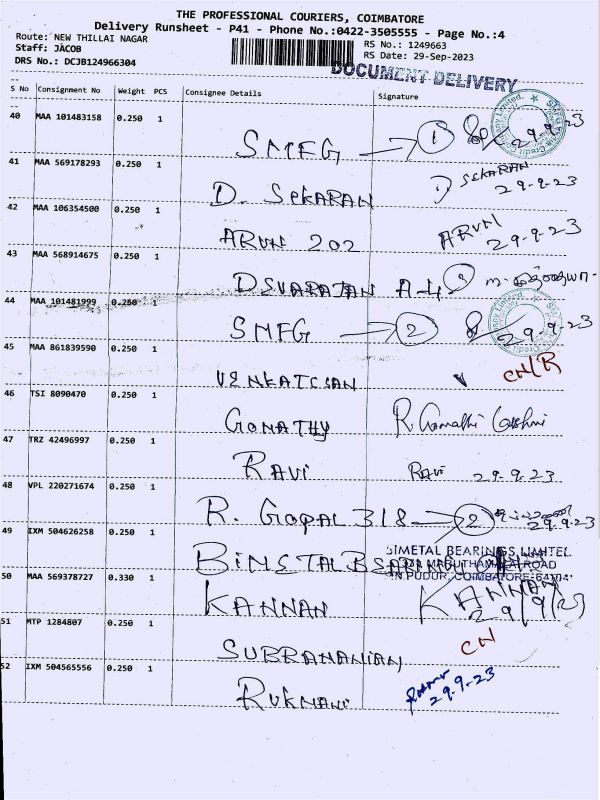 THE PROFESSIONAL COURIERS, COIMBATORE
Delivery Runsheet - P41 - Phone No.:0422-3505555 - Page No.:4
Route: NEW THILLAI NAGAR
Staff: JACOB
DRS No.: DCJB124966304
RS No.: 1249663
RS Date: 29-Sep-2023
DOCUMENT DELIVERY
S No Consignment No Weight PCS Consignee Details Signature
40 MAA 101483158 0.250 1
SMFG 1 29-9-23
41 MAA 569178293 0.250 1
D. SEKARAN D SEKARAN 29-9-23
42 MAA 106354500 0.250 1
ARUN 202 ARUN 29-9-23
43 MAA 568914675 0.250 1
A-4
44 MAA 101481999 0.250 1
SMFG 2 29-9-23
45 MAA 861839590 0.250 1
VENKATESAN CN/R
46 TSI 8090470 0.250 1
GOMATHY R. Gomathi
47 TRZ 42496997 0.250 1
RAVI Ravi 29.9.23
48 VPL 220271674 0.250 1
R. GOPAL 318 2 29-9-23
49 IXM 504626258 0.250 1
BIMETAL BEARING
BIMETAL BEARINGS LIMITED
MARUTHAMALAI ROAD
COIMBATORE-641041
50 MAA 569378727 0.330 1
KANNAN KANNAN 29/9/23
51 MTP 1284807 0.250 1
SUBRAMANIAN CN
52 IXM 504565556 0.250 1
RUKMANI 29.9.23